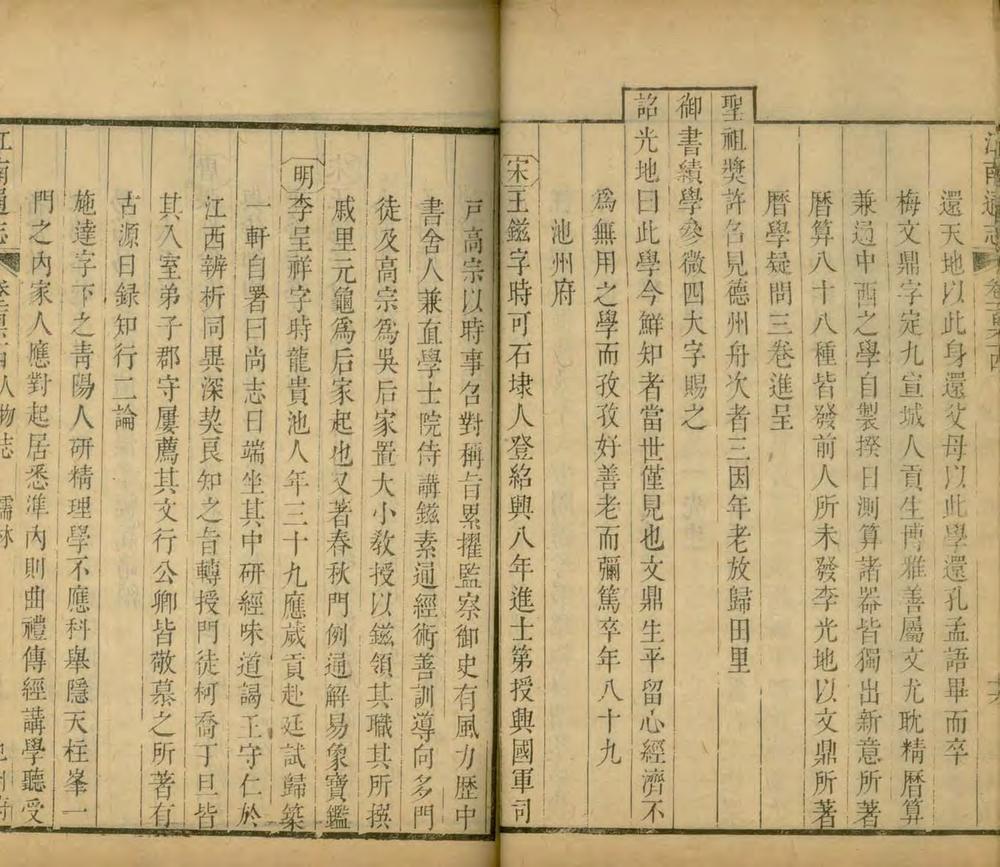 江南通志
還天地以此身還父母以此學還孔孟語畢而卒
梅文鼎字定九宣城人貢生博雅善屬文尤耽精曆算
兼通中西之學自製揆日測算諸器皆獨出新意所著
曆算八十八種皆發前人所未發李光地以文鼎所著
曆學疑問三卷進呈
聖祖獎許召見德州舟次者三因年老放歸田里
御書績學參微四大字賜之
詔光地曰此學今鮮知者當世僅見也文鼎生平留心經濟不
為無用之學而孜孜好善老而彌篤卒年八十九
池州府
宋王鎡字時可石埭人登紹興八年進士第授興國軍司
戸高宗以時事召對稱旨累擢監察御史有風力歷中
書舍人兼直學士院侍講鎡素通經術善訓導向多門
徒及高宗為吳后家置大小教授以鎡領其職其所撰
戚里元龜為后家起也又著春秋門例通解易象寶鑑
明李呈祥字時龍貴池人年三十九應歲貢赴廷試歸築
一軒自署曰尚志日端坐其中研經味道謁王守仁於
江西辨析同異深契良知之旨轉授門徒柯喬丁旦皆
其入室弟子郡守屢薦其文行公卿皆敬慕之所著有
古源日録知行二論
施達字下之青陽人研精理學不應科舉隱天柱峯一
門之內家人應對起居悉準內則曲禮傳經講學聽受
江南通志 人物志 儒林